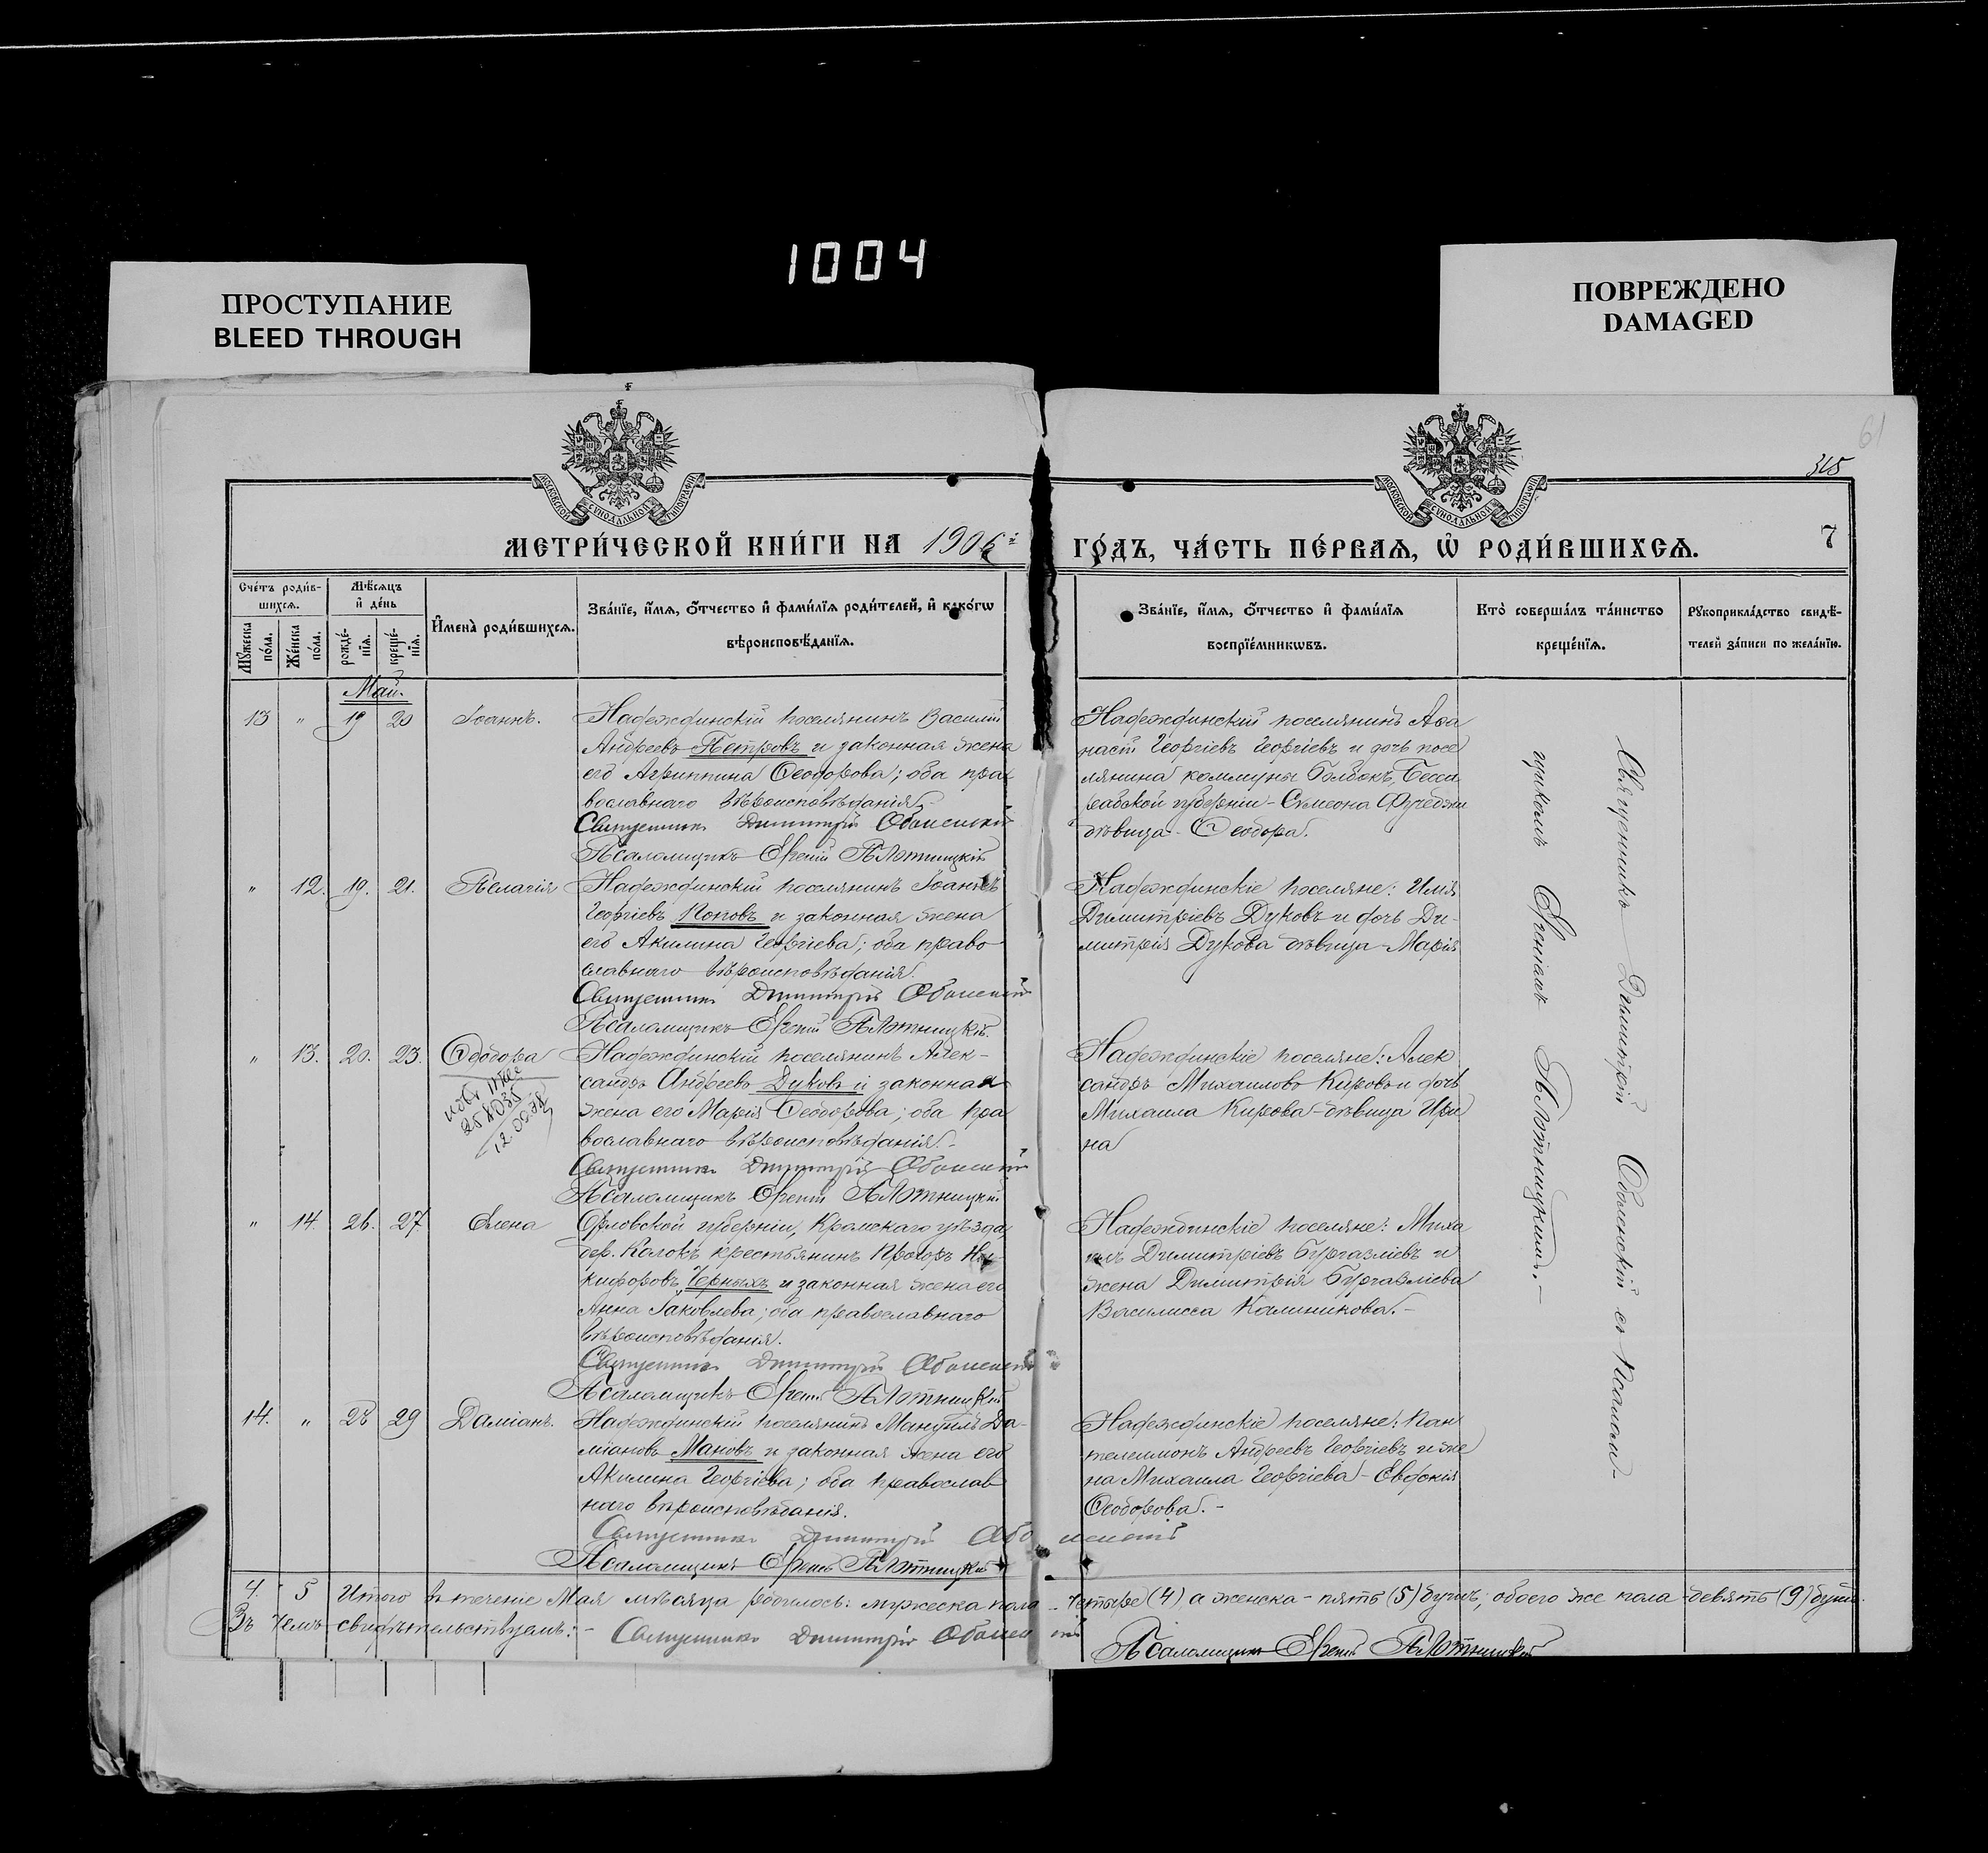 1004
ПРОСТУПАНИЕ
BLEED THROUGH
ПОВРЕЖДЕНО
DAMAGED
61
315
7
МОСКОВСКОЙ СѴНОДАЛЬНОЙ ТИПОГРАФІИ
МОСКОВСКОЙ СѴНОДАЛЬНОЙ ТИПОГРАФІИ
МЕТРИ́ЧЕСКОЙ КНИ́ГИ НА 1906й ГО́ДЪ, ЧА́СТЬ ПЕ́РВАѦ, Ѡ҆ РОДИ́ВШИХСѦ.
Сче́тъ роди́в-
шихсѧ.
Мꙋ́жеска по́ла.
Же́нска по́ла.
Мѣ́сѧцъ
и҆ де́нь
рожде́-
нїѧ.
креще́-
нїѧ.
И҆мена̀ роди́вшихсѧ.
Зва́нїе, и҆́мѧ, ѻ҆́тчество и҆ фами́лїѧ роди́телей, и҆ како́гѡ
вѣроисповѣ́данїѧ.
Зва́нїе, и҆́мѧ, ѻ҆́тчество и҆ фами́лїѧ
воспрїе́мникѡвъ.
Кто̀ соверша́лъ та́инство
креще́нїѧ.
Рꙋкоприкла́дство свидѣ́-
телей за́писи по жела́нїю.
Май.
13 " 19 20 Іоаннъ.
Надеждинскій поселянинъ Василій
Андреевъ Петровъ и законная жена
его Агриппина Ѳеодорова; оба пра
вославнаго вѣроисповѣданія.
Священникъ Димитрій Оболенскій
Псаломщикъ Евгеній Плотницкій
Надеждинскій поселянинъ Аѳа
насій Георгіевъ Георгіевъ и дочь посе
лянина коммуны Болбокъ, Бесса
рабской губерніи - Симеона
дѣвица - Ѳеодора.
" 12. 19. 21. Пелагія
Надеждинскій поселянинъ Іоаннъ
Георгіевъ Поповъ и законная жена
его Акилина Георгіева; оба право
славнаго вѣроисповѣданія.
Священникъ Димитрій Оболенскій
Псаломщикъ Евгеній Плотницкій.
Надеждинскіе поселяне: Илія
Димитріевъ Дуковъ и дочь Ди-
митрія Дукова дѣвица - Марія
" 13. 20. 23. Ѳеодора
Надеждинскій поселянинъ Алек-
сандръ Андреевъ Дуковъ и законная
жена его Марія Ѳеодорова; оба пра
вославнаго вѣроисповѣданія. -
Священникъ Димитрій Оболенскій
Псаломщикъ Евгеній Плотницкій
Надеждинскіе поселяне: Алек
сандръ Михаиловъ Кировъ и дочь
Михаила Кирова - дѣвица Ири
на
" 14. 26. 27. Елена
Орловской губерніи, Кромскаго уѣзда,
дер. Колокъ крестьянинъ Прохоръ Ни
кифоровъ Черныхъ и законная жена его
Анна Іаковлева; оба православнаго
вѣроисповѣданія.
Священникъ Димитрій Оболенскій
Псаломщикъ Евгеній Плотницкій
Надеждинскіе поселяне: Миха
илъ Димитріевъ Бургазліевъ и
жена Димитрія Бургазліева
Василисса Калиникова. -
14. " 28 29 Даміанъ.
Надеждинскій поселянинъ Мануилъ Да-
міановъ Мановъ и законная жена его
Акилина Георгіева; оба православ
наго вѣроисповѣданія.
Священникъ Димитрій Оболенскій
Псаломщикъ Евгеній Плотницкій
Надеждинскіе поселяне: Пан
телеимонъ Андреевъ Георгіевъ и же
на Михаила Георгіева - Евдокія
Ѳеодорова. -
Священникъ Димитрій Оболенскій съ Псалом-
щикомъ Евгеніемъ Плотницкимъ. -
4. 5 Итого въ теченіе Мая мѣсяца родилось: мужеска пола - четыре (4) а женска - пять (5) душъ, обоего же пола девять (9) душъ.
Въ чемъ свидѣтельствуемъ: - Священникъ Димитрій Оболенскій
Псаломщикъ Евгеній Плотницкій